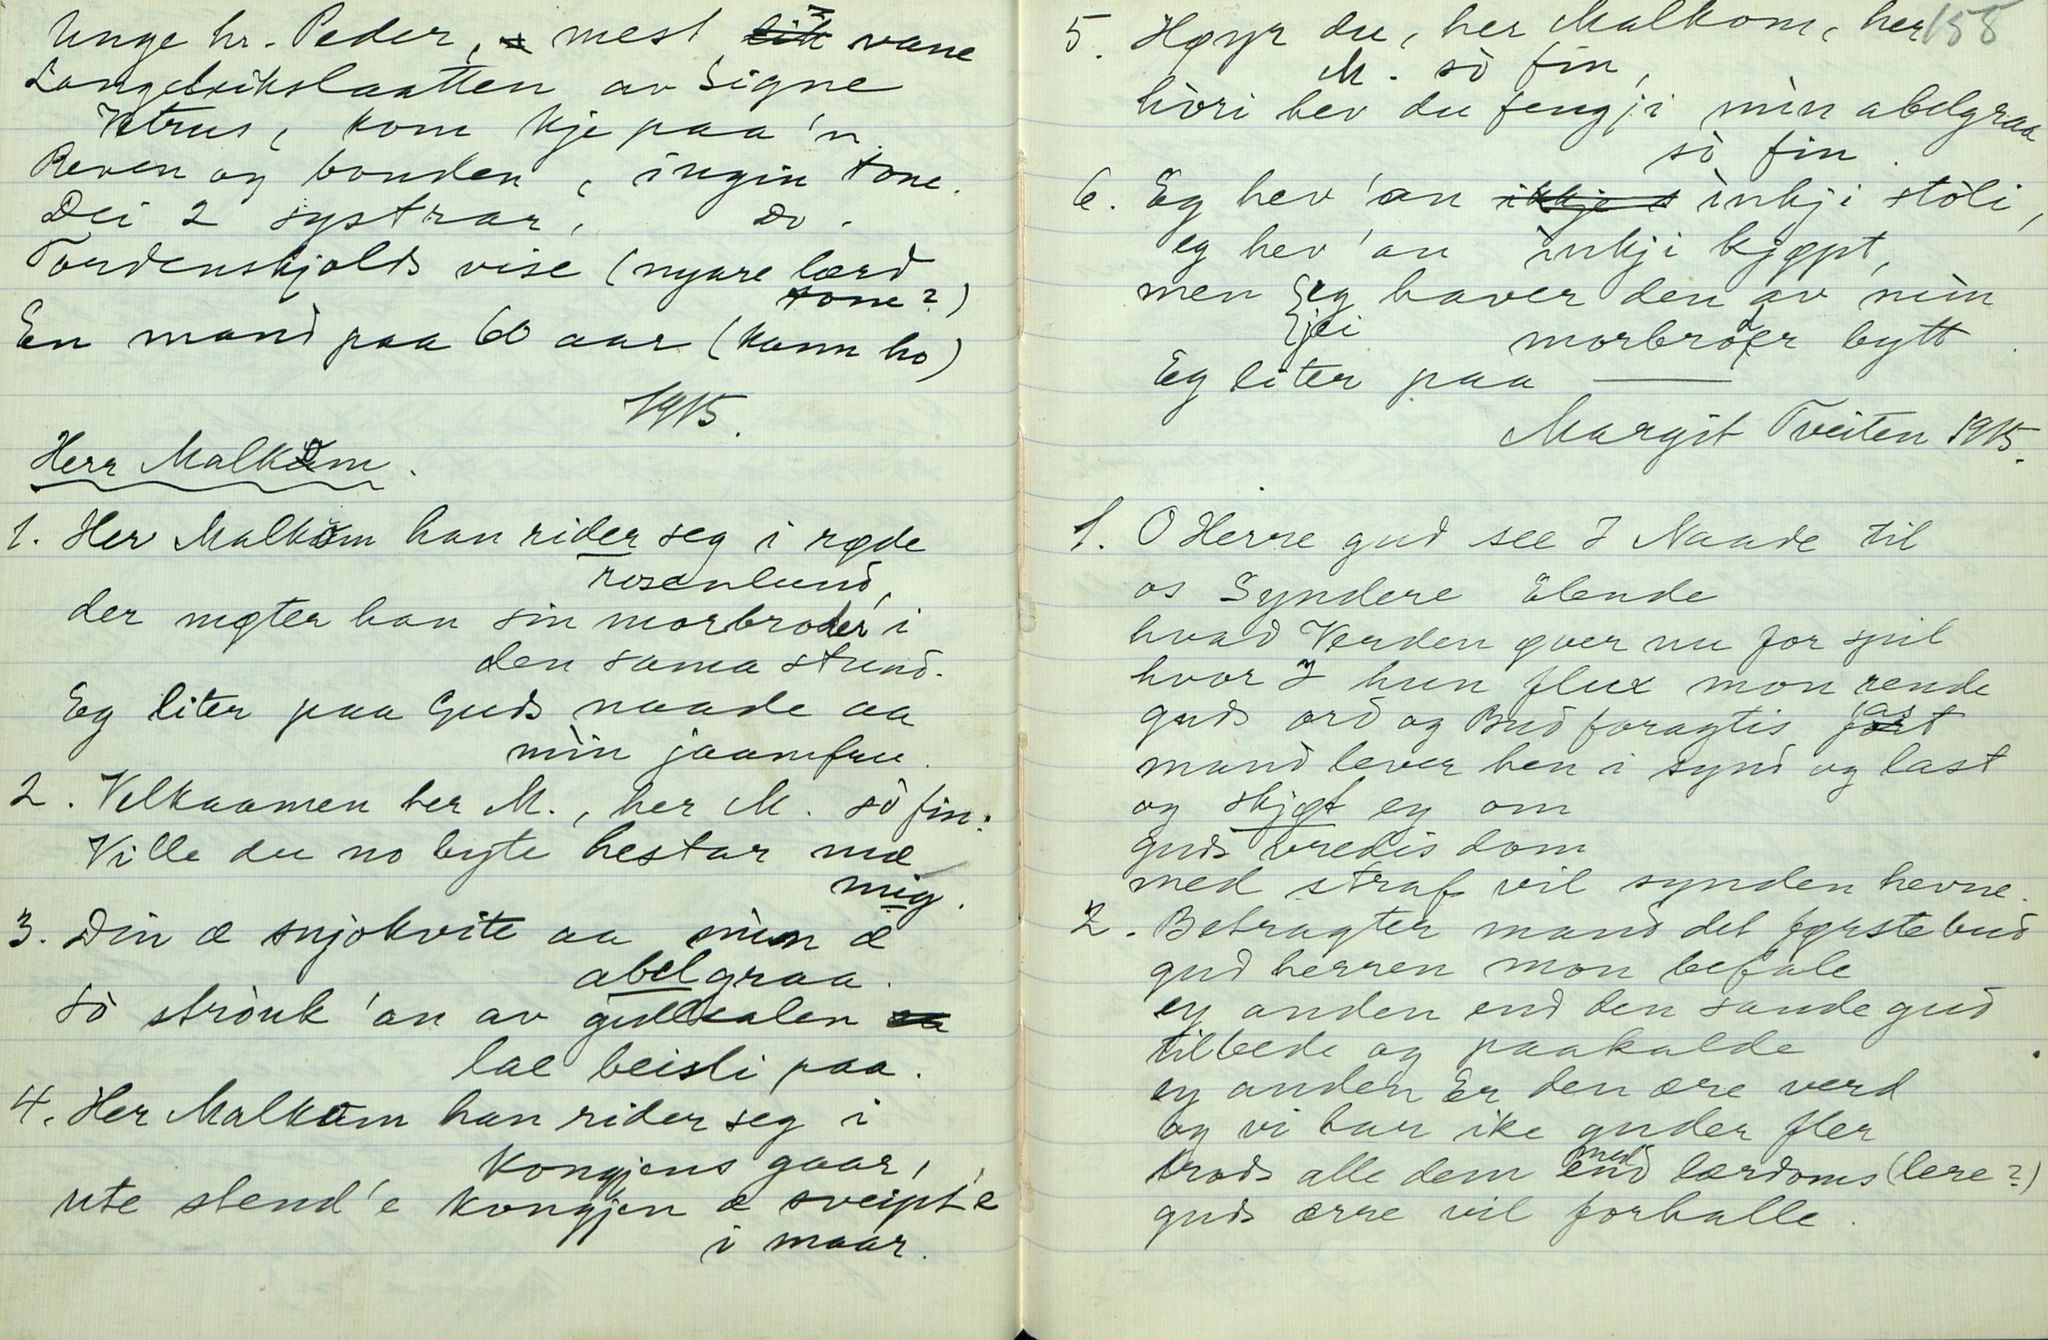 Unge hr. Peder, mest vane
Langeleikslaatten av Signe
kom kje paa 'n
Reven og bonden, ingin tone.
Dei 2 systrar, Do.
Tordenskjolds vise (nyare lærd
tone?)
En mand paa 60 aar (kann ho)
1915.
Herr Malkom.
1. Her Malkom han rider seg i røde
rosenlund,
der møter han sin morbroder i
den sama stund.
Eg liter paa Guds naade aa
min jaamfru.
2. Velkaamen her M., her M. sò fin:
Ville du no byte hestar mæ
mig.
3. Din æ snjokvite aa min æ
abelgraa.
sò strouk 'an av gullsalen
lae beisli paa.
4. Her Malkom han rider seg i
Kongjens gaar,
ute stend'e kongjen æ sveipt'e
i maar.
158
5. Høyr du, her Malkom, her
M. sò fin,
hòri hev du fengji min abelgraa
sò fin.
6. Eg hev 'an inkji stòli,
eg hev 'an inkji kjøpt,
men eg haver den av min
jei morbroder bytt.
Eg liter paa ———
Margit Tveiten 1915.
1. O Herre gud see I Naade til
os Syndere Elende
hvad Verden øver nu for spil
hvor I hun flux mon rende
guds ord og Bud foragtis fast
mand lever hen i synd og last
og skjøt ey om
guds vredis dom
med straf vil synden hevne.
2. Betragter mand det første bud
gud herren mon befale
ey anden end den sande gud
tilbede og paakalde
ey anden Er den ære verd
og vi har ike guder fler
trods alle dem med
end lærdoms (lere?)
guds ærre vil forhalle.